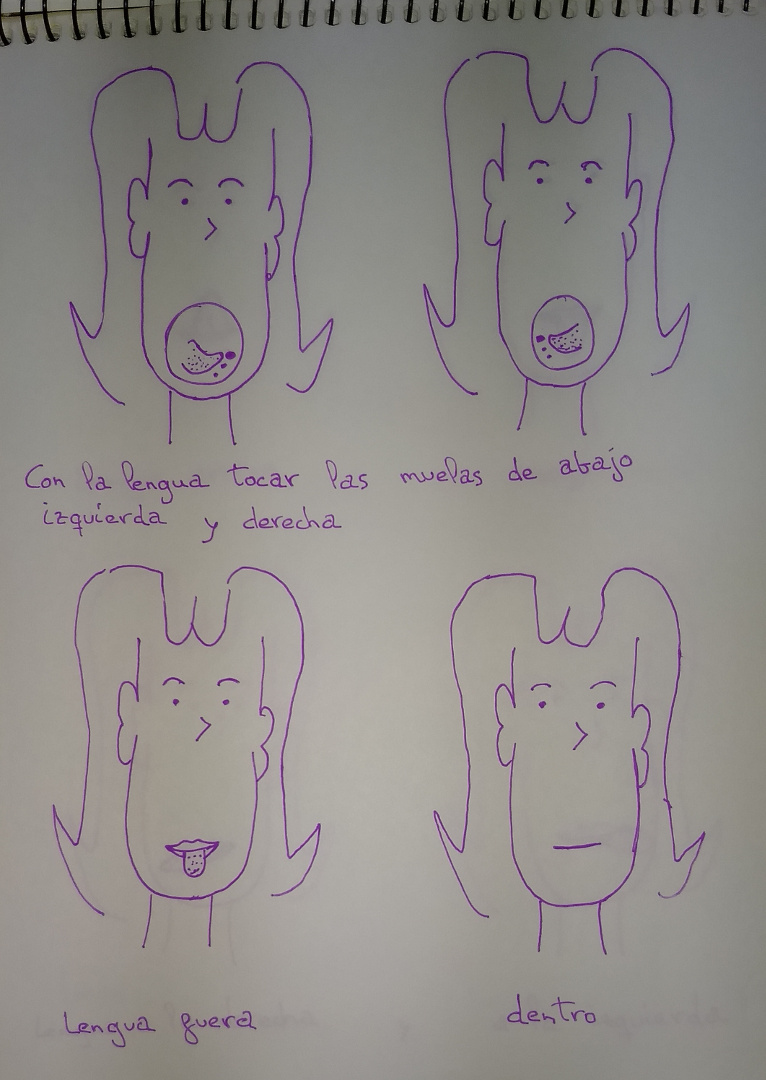 Con la lengua tocar las muelas de abajo
izquierda y derecha
Lengua fuera
dentro